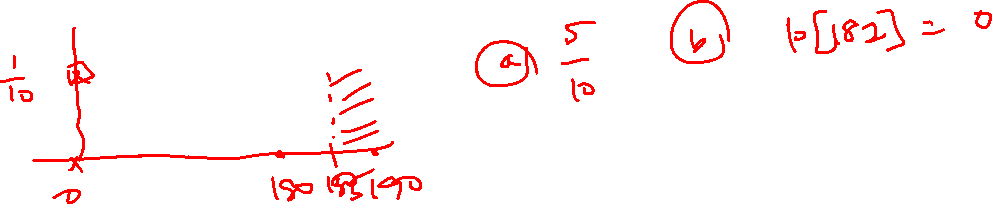 1/10
0 180 185 190
(a) 5/10
(b) p[182] = 0